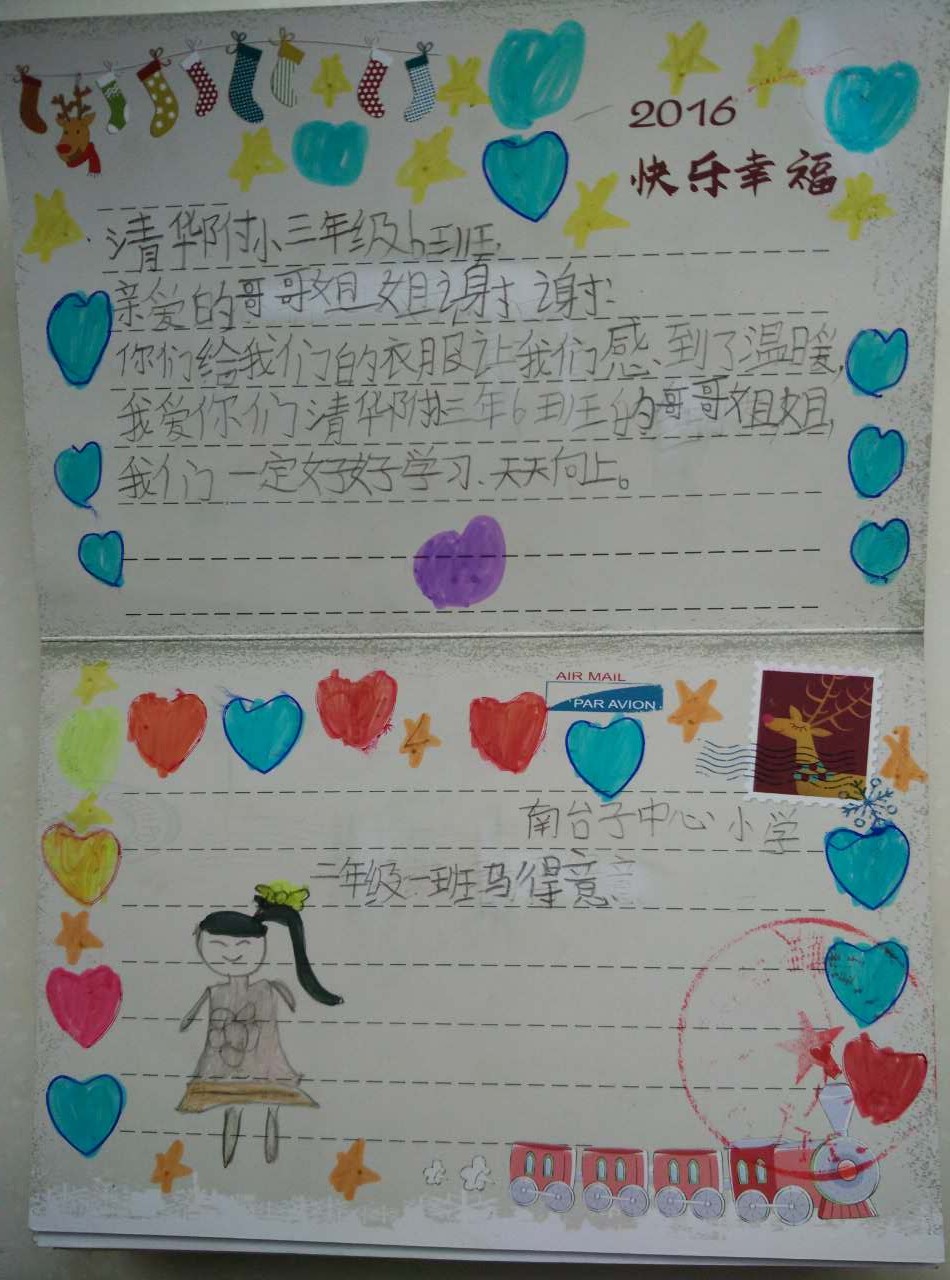 2016
快乐幸福
清华附小三年级6班班,
亲爱的哥哥姐姐谢谢:
你们给我们的衣服让我们感到了温暖,
我爱你们清华附小三年6班班的哥哥姐姐,
我们一定好好学习、天天向上。
AIR MAIL
PAR AVION
南台子中心小学
二年级一班马得意